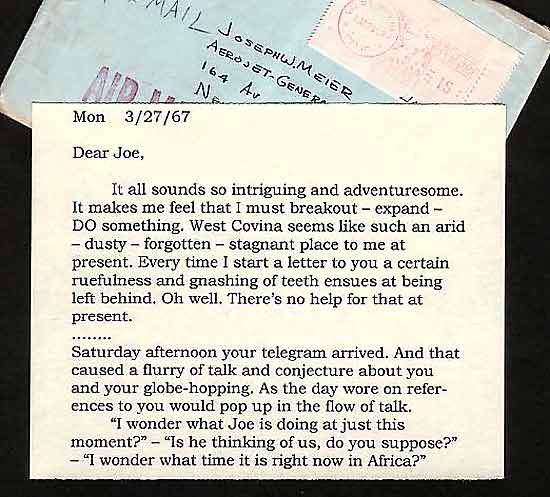 AIR MAIL
JOSEPH W. MEIER
AEROJET-GENERA
164 AV
NE
AIR M
Mon 3/27/67
Dear Joe,
It all sounds so intriguing and adventuresome.
It makes me feel that I must breakout – expand –
DO something. West Covina seems like such an arid
– dusty – forgotten – stagnant place to me at
present. Every time I start a letter to you a certain
ruefulness and gnashing of teeth ensues at being
left behind. Oh well. There's no help for that at
present.
........
Saturday afternoon your telegram arrived. And that
caused a flurry of talk and conjecture about you
and your globe-hopping. As the day wore on refer-
ences to you would pop up in the flow of talk.
"I wonder what Joe is doing at just this
moment?" – "Is he thinking of us, do you suppose?"
– "I wonder what time it is right now in Africa?"